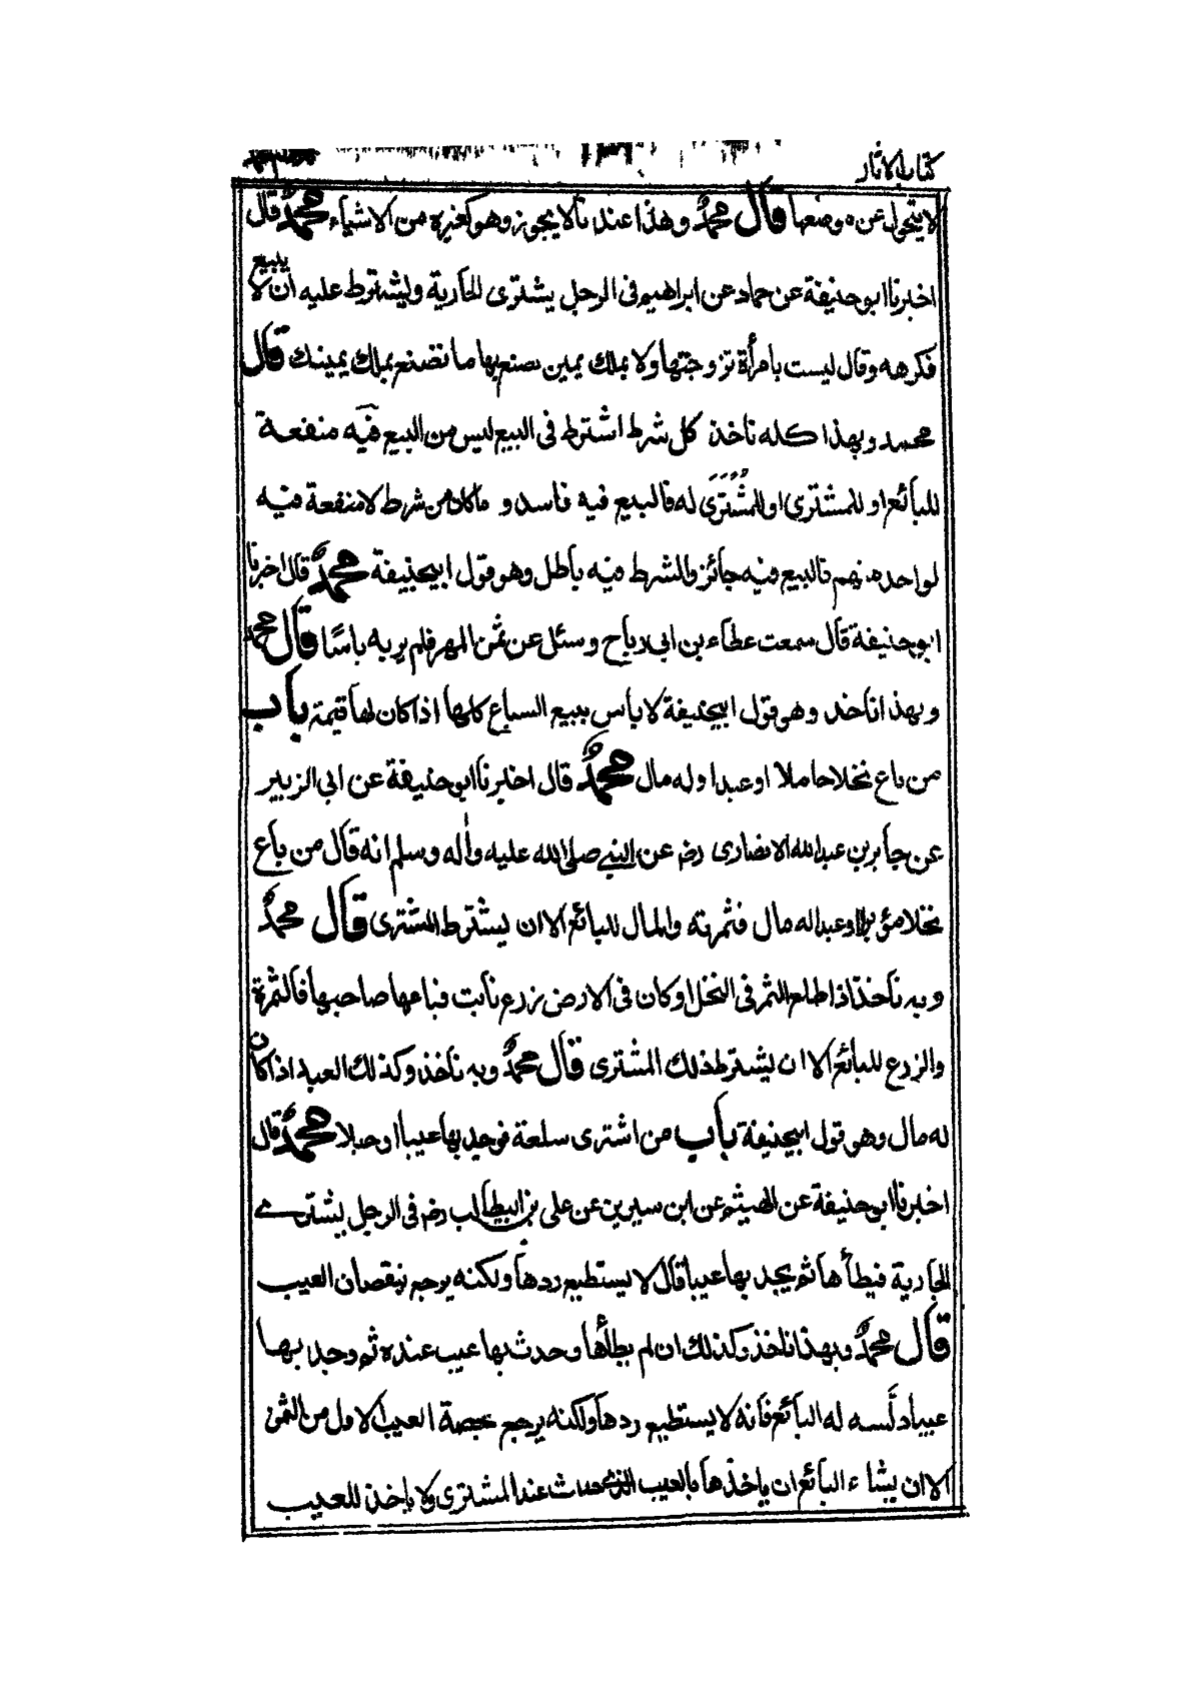 كتاب الاثار
١٣١
لا يتحول عن موضعها قال محمد وهذا عندنا لا يجوز وهو كغيره من الاشياء محمد قال
اخبرنا ابو حنيفة عن حماد عن ابراهيم في الرجل يشترى الجارية ويشترط عليه ان لا يبيع
فكرهه وقال ليست بامرأة تزوجتها ولا بملك يمين تصنع بها ما تصنع بملك يمينك قال
محمد وبهذا كله ناخذ كل شرط اشترط في البيع ليس من البيع فيه منفعة
للبائع او للمشترى او للمشترى له فالبيع فيه فاسد و ما كان من شرط لا منفعة فيه
لواحد منهم فالبيع فيه جائز والشرط فيه باطل وهو قول ابيحنيفة محمد قال اخبرنا
ابو حنيفة قال سمعت عطاء بن ابي رباح وسئل عن ثمن الهر فلم ير به باسًا قال محمد
وبهذا ناخذ وهو قول ابيحنيفة لا باس ببيع السباع كلها اذا كان لها قيمة باب
من باع نخلا حاملا او عبدا وله مال محمد قال اخبرنا ابو حنيفة عن ابي الزبير
عن جابر بن عبد الله الانصارى رضـ عن النبي صلى الله عليه واٰله وسلم انه قال من باع
نخلا مؤبرا او عبدا له مال فثمرته والمال للبائع الا ان يشترط المشترى قال محمد
وبه ناخذ اذا طلع الثمر في النخل او كان في الارض زرع نابت فباعها صاحبها فالثمرة
والزرع للبائع الا ان يشترط ذلك المشترى قال محمد وبه ناخذ وكذلك العبد اذا كان
له مال وهو قول ابيحنيفة باب من اشترى سلعة فوجد بها عيبا او حبلا محمد قال
اخبرنا ابو حنيفة عن الهيثم عن ابن سيرين عن على بن ابيطالب رضـ في الرجل يشترى
الجارية فيطأها ثم يجد بها عيبا قال لا يستطيع ردها ولكنه يرجع بنقصان العيب
قال محمد وبهذا ناخذ وكذلك ان لم يطأها وحدث بها عيب عنده ثم وجد بها
عيبا دلَّسه له البائع فانه لا يستطيع ردها ولكنه يرجع بحصة العيب الاول من الثمن
الا ان يشاء البائع ان ياخذها بالعيب الذى حدث عند المشترى ولا ياخذ للعيب